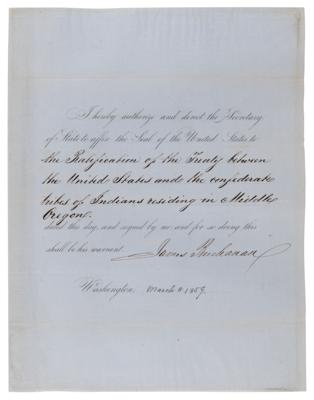 I hereby authorize and direct the Secretary
of State to affix the Seal of the United States to
the Ratification of the Treaty between
the United States and the confederate
tribes of Indians residing in Middle
Oregon.
dated this day, and signed by me and for so doing this
shall be his warrant.
James Buchanan
Washington, March 8. 1859.